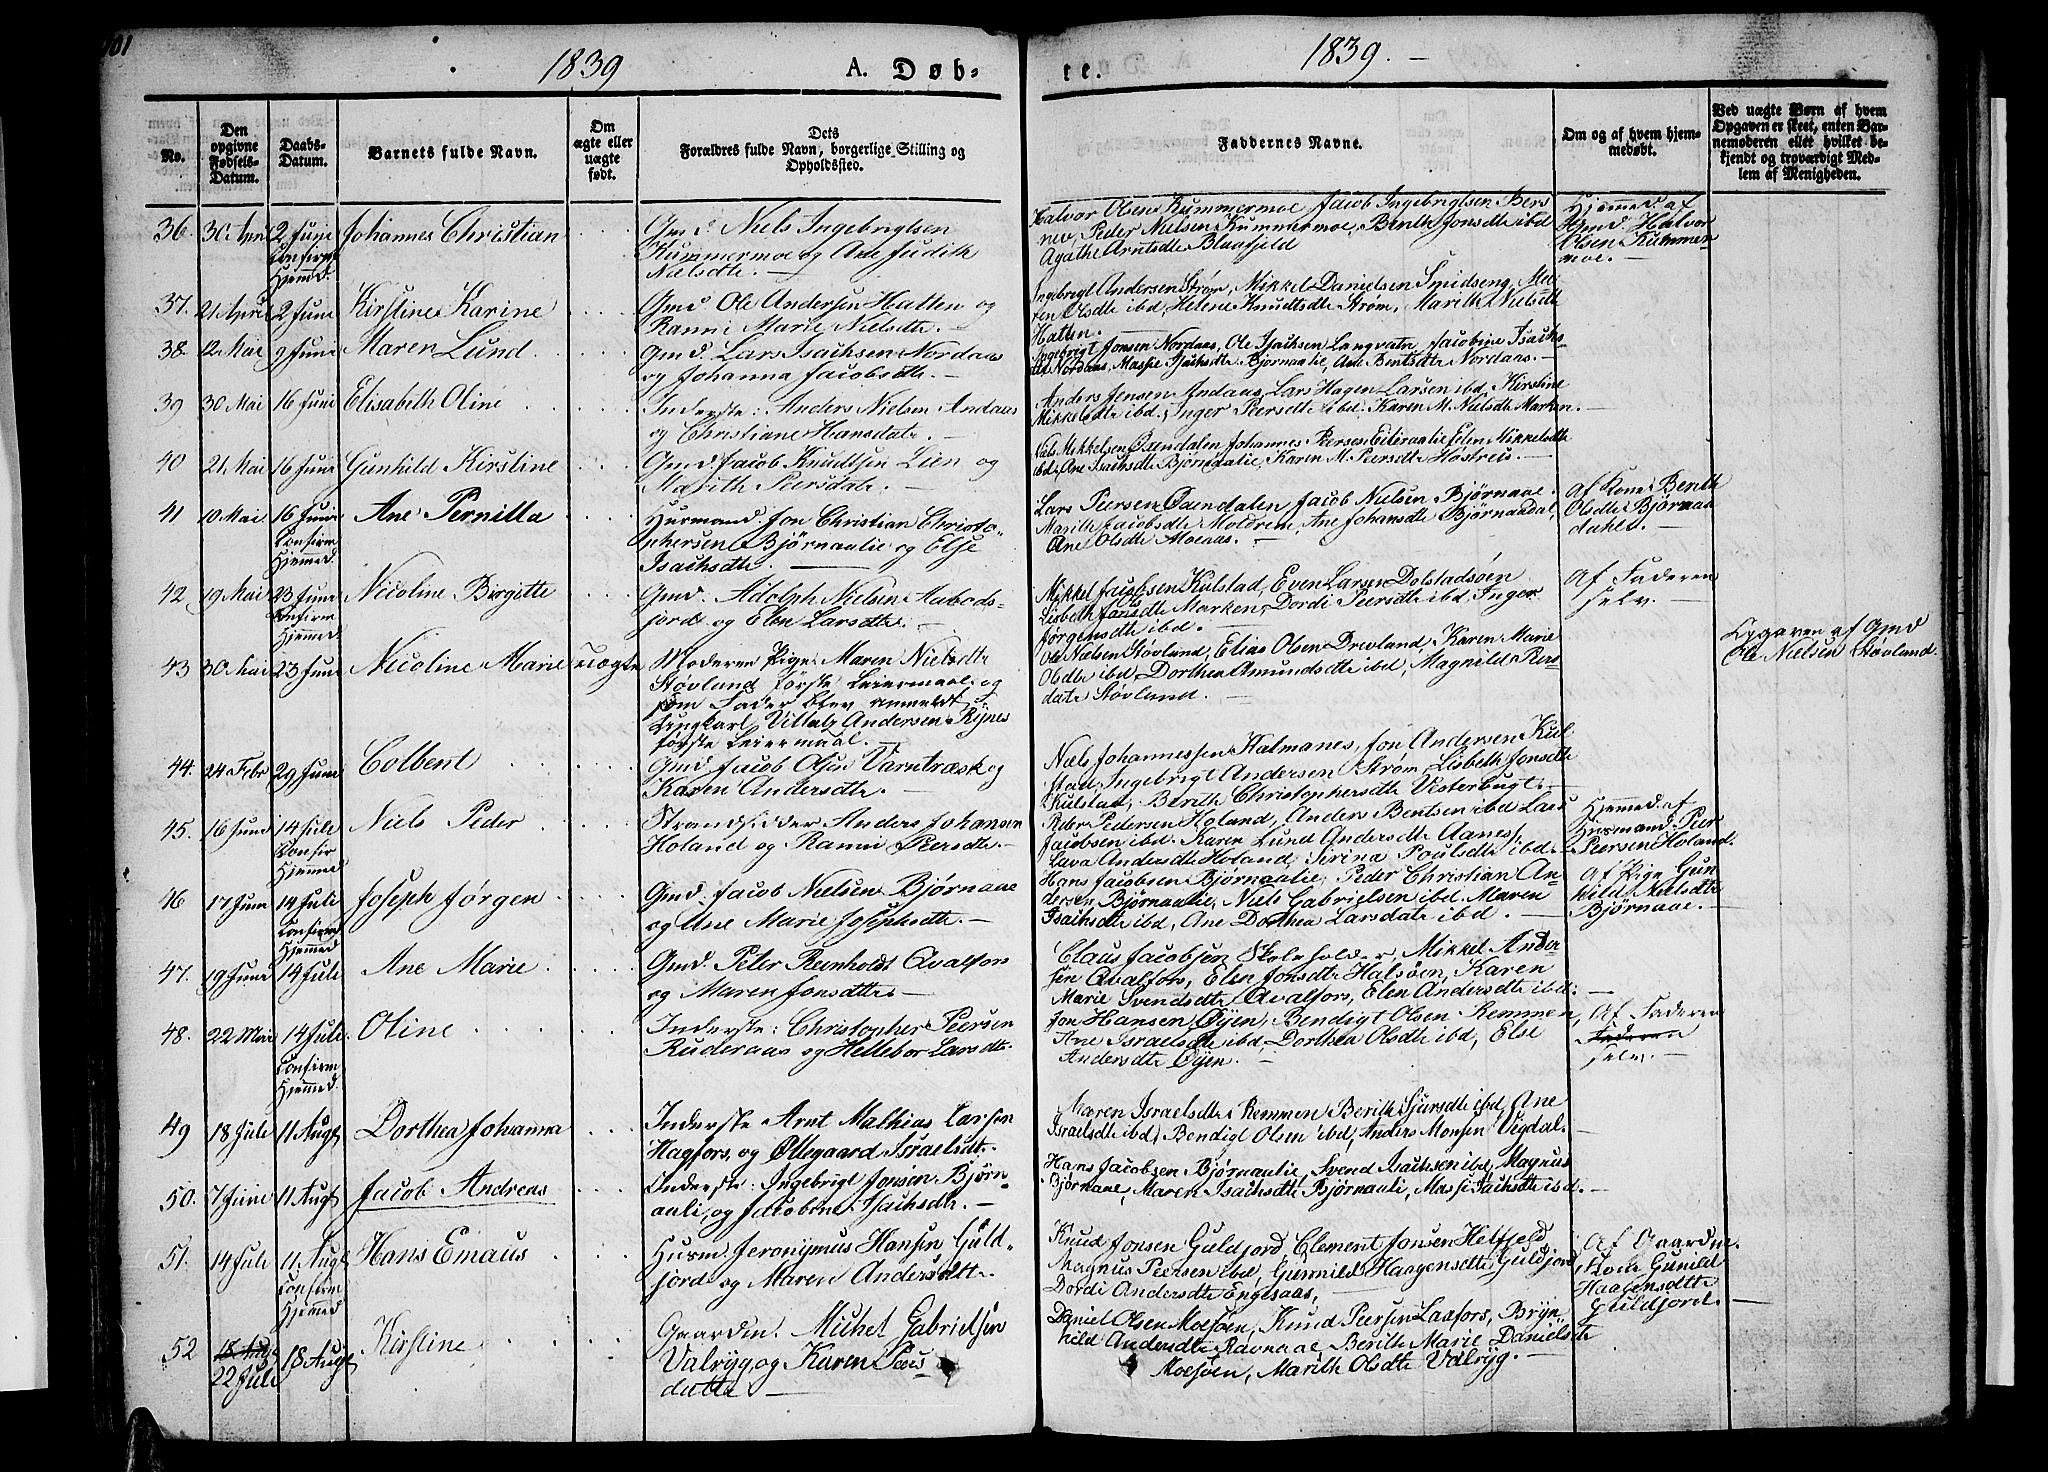 101
1839
A. Døb-
te.
1839. —
No.
Den
opgivne
Fødsels-
Datum.
Daabs-
Datum.
Barnets fulde Navn.
Om
ægte eller
uægte
født.
Dets
Forældres fulde Navn, borgerlige Stilling og
Opholdssted.
Faddernes Navne.
Om og af hvem hjem-
medøbt.
Ved uægte Børn af hvem
Opgaven er skeet, enten Bar-
nemoderen eller hvilket be-
kjendt og troværdigt Med-
lem af Menigheden.
36. 30 April 2 Juni Johannes Christian
Confirm
Hjemmed.
Gmd. Niels Ingebrigtsen
Kummermoe og Ane Judith
Nielsdtr. —
Halvor Olsen Kummermoe Jacob Ingebrigtsen Bers
nev, Peder Nielsen Kummermoe, Berith Jonsdtr ibd
Agathe Arntsdtr Blaafjeld
Hjemmed. af
Gmd. Halvor
Olsen Kummer
moe. —
37. 21 April 2 Juni Kirstine Karine
Gmd Ole Andersen Hatten og
Ranni Marie Nielsdtr. —
Ingebrigt Andersen Strøm, Mikkel Danielsen Smidseng, Ma-
ren Olsdtr ibd, Helene Knudtsdtr Strøm, Marith Nielsdtr
Hatten.
38. 12 Mai 9 Juni Maren Lund
Gmd. Lars Isachsen Nordaas
og Johanna Jacobsdtr. —
Ingebrigt Jonsen Nordaas, Ole Isachsen Langvatn, Jacobine Isachs-
dtr Nordaas, Massie Isachsdtr Bjørnaalie, Ane Bentsdtr Nordaas. —
39 30 Mai 16 Juni Elisabeth Oline
Inderste: Anders Nielsen Andaas
og Christiane Hansdatr. —
Anders Jensen Indaas, Lars Hagen Larsen ibd, Kirstine
Mikkelsdtr ibd, Inger Peersdtr ibd. Karen M. Nielsdtr Marken. —
40 21 Mai 16 Juni Gunhild Kirstine
Gmd. Jacob Knudtsen Lien og
Marith Peersdatr. —
Niels Mikkelsen Øxendalen Johannes Peersen Eiteraalie Elen Mikkelsdtr
ibd, Ane Isachsdtr Bjørndalie, Karen M. Peersdtr Høstreis. —
41 10 Mai 16 Juni Ane Pernilla
Confirm
Hjemmed.
Huusmand Jon Christian Christo-
phersen Bjørnaalie og Else
Isachsdtr. —
Lars Peersen Øxendalen Jacob Nielsen Bjørnaae
Marith Jacobsdtr Moldrem, Ane Johansdtr Bjørnaadal,
Ane Olsdtr Moeaas. —
Af Kone Berith
Olsdtr Bjørnaa
dahl. —
42 19 Mai 23 Juni Nicoline Birgitte
Confirm
Hjemmed.
Gmd. Adolph Nielsen Aabods-
jord og Elen Larsdtr. —
Mikkel Jacobsen Kulstad, Even Larsen Dolstadsøen
Lisbeth Jonsdtr Marken, Dordi Peersdtr ibd, Inger
Jørgensdtr ibd. —
Af Faderen
selv. —
43 30 Mai 23 Juni Nicoline Marie uægte
Moderen Pige: Maren Nielsdtr
Støvland første Leiermaal og
som Fader blev anmeldt
Ungkarl Villatz Andersen Rynes
første Leiermaal. —
Ole Nielsen Støvland, Elias Olsen Drevland, Karen Marie
Olsdtr ibd, Dorthea Amundsdtr ibd, Magnild Peers-
datr Støvland. —
Opgaven af Gmd
Ole Nielsen Støvland.
44. 24 Febr 29 Juni Colbent
Gmd. Jacob Olsen Varntræsk og
Karen Andersdtr. —
Niels Johannessen Halmanes, Jon Andersen Kul-
stad, Ingebrigt Andersen Strøm, Lisbeth Jonsdtr
Kulstad, Berith Christophersdtr Vesterbugt. —
45. 16 Juni 14 Juli Niels Peder
Confir
Hjemmed
Strandsidder Anders Johansen
Holand og Ranni Peersdtr. —
Peder Pedersen Holand, Anders Bentsen ibd Lars
Jacobsen ibd. Karen Lund Andersdtr Aanes,
Lava Andersdtr Holand, Sirina Poulsdtr ibd. —
Hjemmed. af
Huusmand: Peer
Peersen Holand
46 17 Juni 14 Juli Joseph Jørgen
Confirm
Hjemmed
Gmd. Jacob Nielsen Bjørnaae
og Ane Marie Josephsdtr. —
Hans Jacobsen Bjørnaalie, Peder Christian An-
dersen Bjørnaalie, Niels Gabrielsen ibd. Maren
Isachsdtr ibd, Ane Dorthea Larsdatr ibd. —
Af Pige Gun
hild Nielsdtr
Bjørnaae. —
47. 19 Juni 14 Juli Ane Marie
Gmd. Peter Reinholdt Avalfors
og Maren Jonsdtr. —
Claus Jacobsen Skoleholder, Mikkel Ander-
sen Avalfors, Elen Jonsdtr Halsøen, Karen
Marie Svendsdtr Avalfors, Elen Andersdtr ibd. —
48. 22 Mai 14 Juli Oline
Confirm
Hjemmed.
Inderste: Christopher Peersen
Ruderaas og Hellebor Larsdtr.
Jon Hansen Øyen, Bendigt Olsen Remmen,
Ane Israelsdtr ibd, Dorthea Olsdtr ibd, Else
Andersdtr Øyen. —
Af Faderen
Faderen
selv. —
49 18 Juli 11 Augt Dorthea Johanna
Inderste Arnt Mathias Larsen
Hagfors, og Ottegaard Israelsdtr.
Maren Israelsdtr Remmen Berith Sjursdtr ibd, Ane
Israelsdtr ibd, Bendigt Olsen ibd, Anders Monsen Vegdal. —
50. 7 Juni 11 Augt Jacob Andreas
Inderste: Ingebrigt Jonsen Bjørn-
aali, og Jacobine Isachsdtr. —
Hans Jacobsen Bjørnaalie, Svend Isachsen ibd, Magnus
Bjørnaae, Maren Isachsdtr Bjørnaali, Massi Isachsdtr ibd. —
51. 14 Juli 11 Augt Hans Emaus
Confirm
Hjemmed
Huusm. Jeronymus Hansen Guld-
jord og Maren Andersdtr.
Knud Jonsen Guldjord, Clement Jonsen Hetfjeld
Magnus Peersen ibd, Gunnild Haagensdtr Guldjord,
Dordi Andersdtr Engesaas,
Af Gaardm.
Kone Gunild
Haagensdtr
Guldjord. —
52 18 Augt 18 Augt Kirstine
22 Juli
Gaardm. Michel Gabrielsen
Valryg, og Karen Pous-
datter —
Daniel Olsen Moesøen, Knud Peersen Laxfors, Bryn-
hild Andersdtr Ravnaae, Berith Marie Danielsdtr
Moesøen, Marith Olsdtr Valryg. —